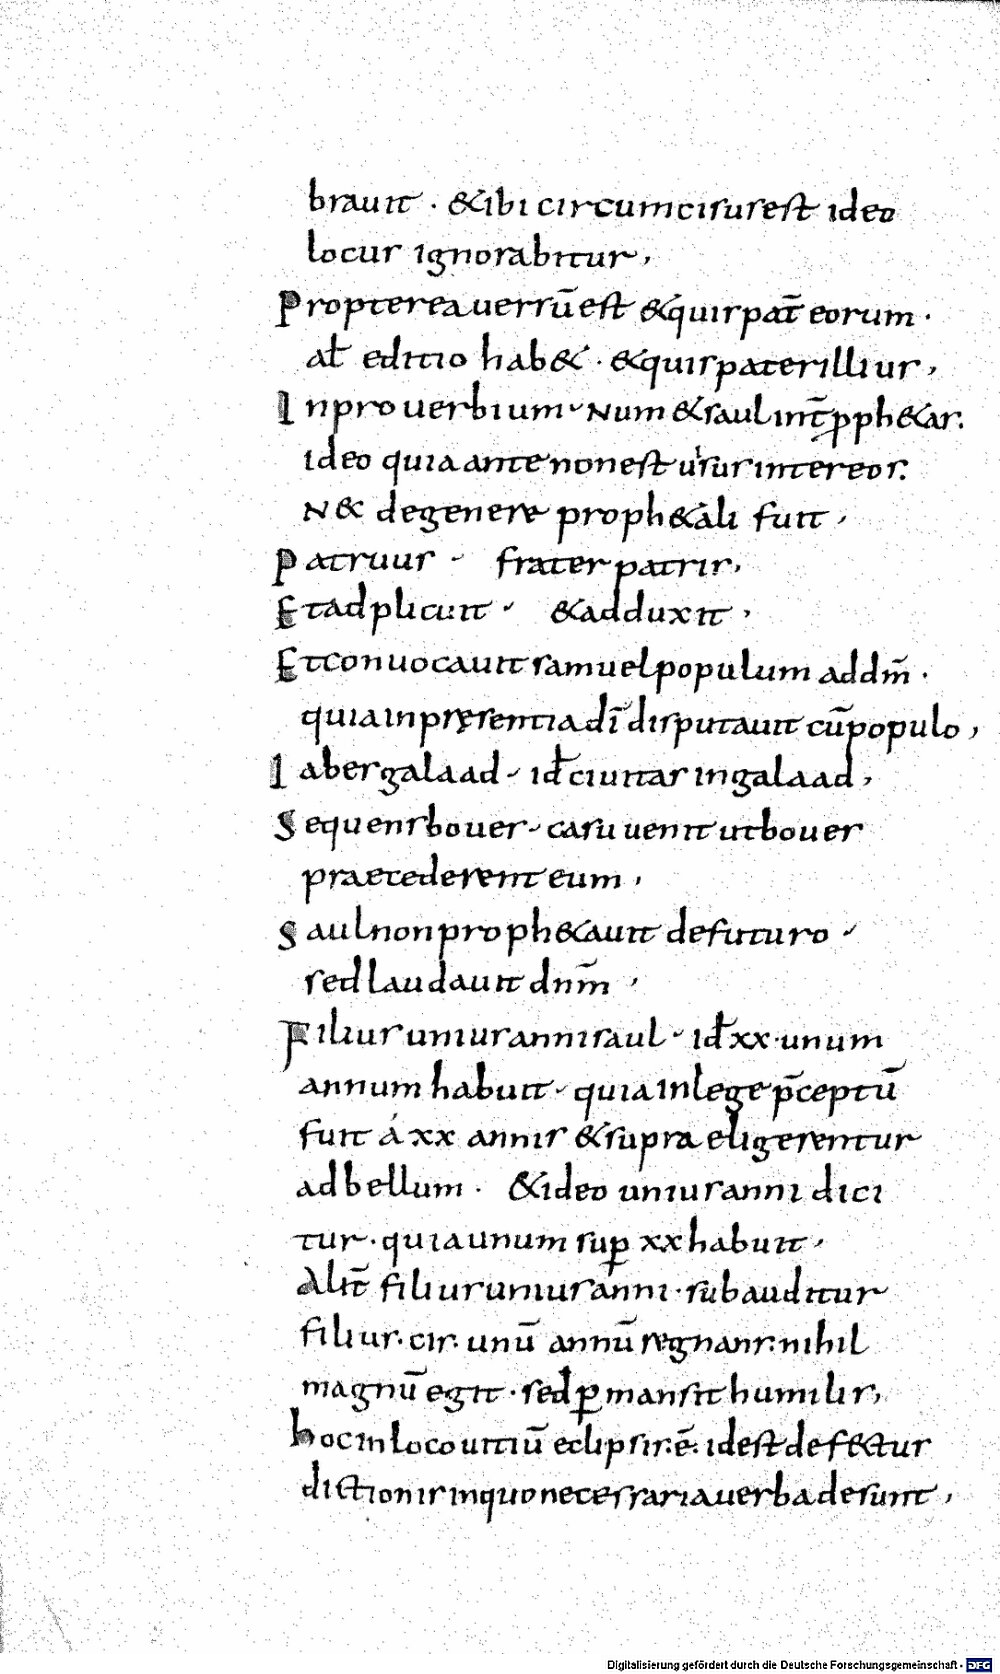 brauit · & ibi circumcisus est ideo
locus ignorabitur,
Propterea uersū est & quis pat̄ eorum ·
al̄ editio hab& · & quis pater illius,
In prouerbium num & saul int̄ pph&as.
ideo quia ante non est uisus inter eos.
N& degenere proph&ali fuit,
Patruus frater patris,
Et adplicuit & adduxit,
Et conuocauit samuel populum ad dm̄ ·
quia in pręsentia dī disputauit cū populo,
Iabes galaad id̄ ciuitas in galaad,
Sequens boues casu uenit ut boues
praecederent eum,
Saul non proph&auit de futuro
sed laudauit dnm̄,
Filius unius anni saul id̄ xx unum
annum habuit quia in lege p̄ceptū
fuit á xx annis & supra eligerentur
ad bellum · & ideo unius anni dici
tur · quia unum sup xx habuit,
Alit̄ filius unius anni · subauditur
filius · cis · unū annū regnans · nihil
magnū egit · sed pmansit humilis,
hoc in loco uitiū eclipsis · ē · id est defectus
dictionis in quo necessaria uerba desunt,
Digitalisierung gefördert durch die Deutsche Forschungsgemeinschaft - DFG